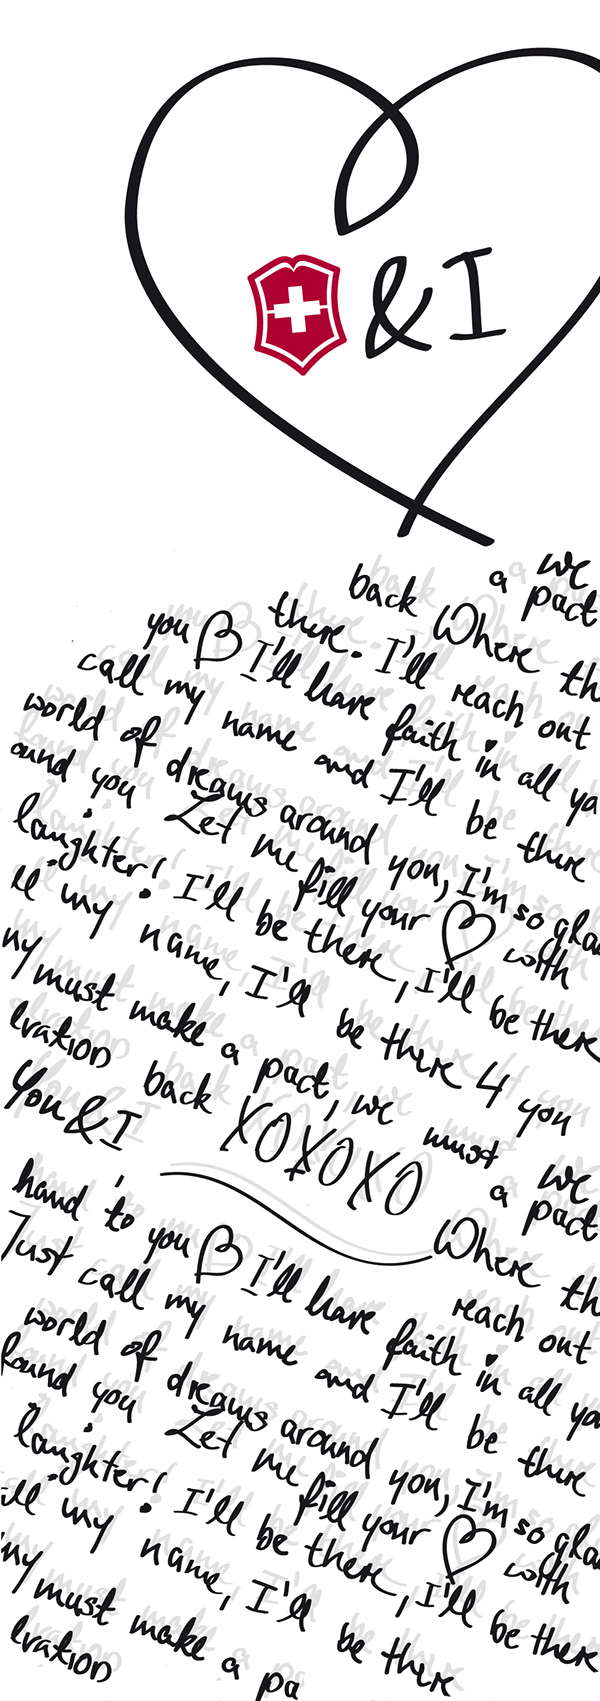 & I
we
back a pact
you there. Where th
call my I'll have I'll reach out
world of name faith in all ya
ound you dreams and I'll be there
laughter! Let me around you, I'm so glad
ll my I'll fill your with
ny name, be there, I'll be there
must make I'll be there 4 you
ration a pact, we must
You & I back XOXOXO we
a pact
hand to you Where th
Just call I'll have reach out
world of my name faith in all ya
found you dreams and I'll be there
laughter! Let me around you, I'm so glad
ll my I'll fill your with
ny name, be there, I'll be there
must make I'll be there
ration a pa